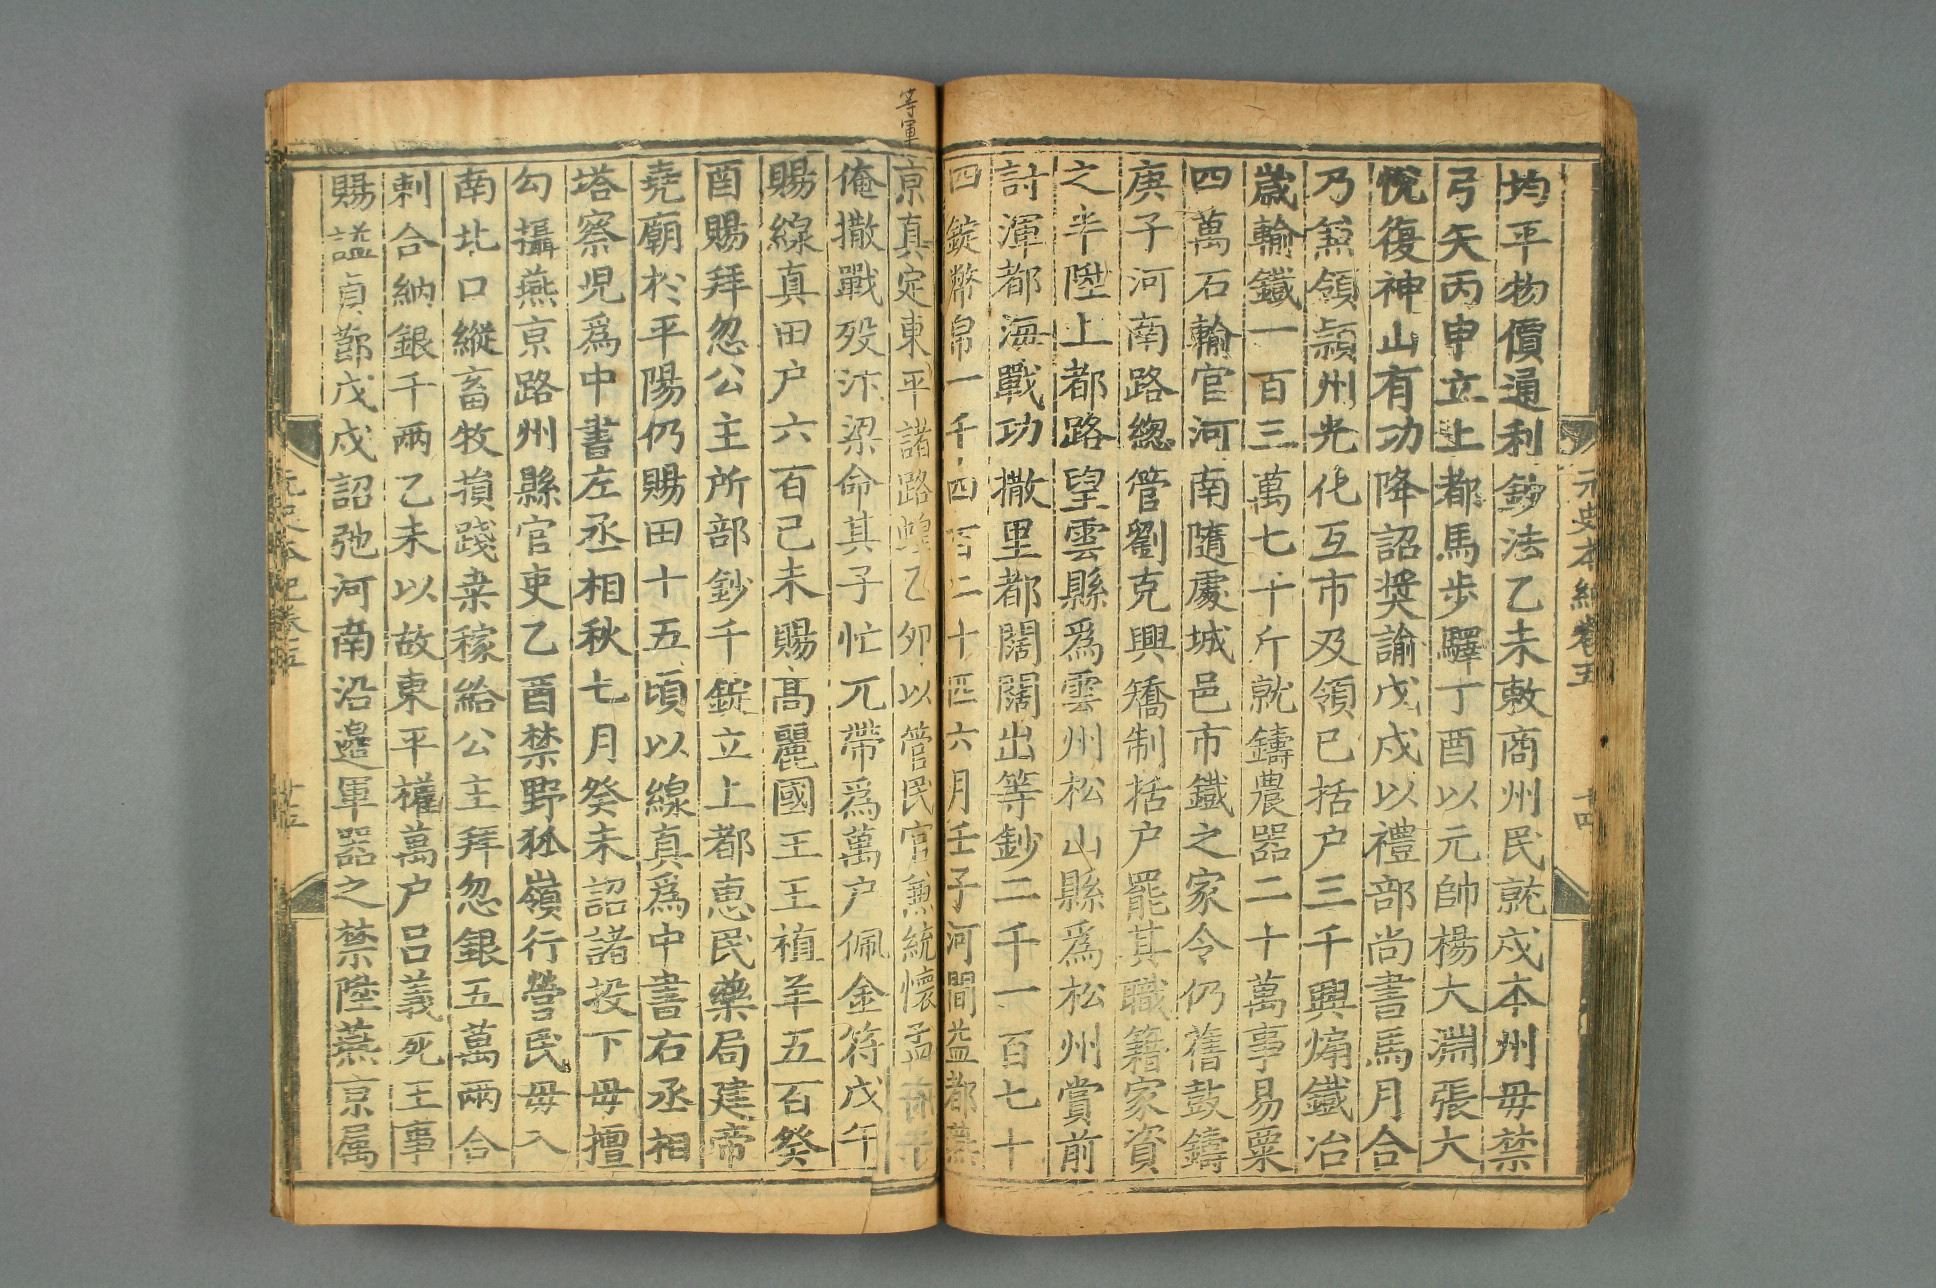 均平物價通利鈔法乙未敕商州民就戍本州毋禁
弓矢丙申立上都馬步驛丁酉以元帥楊大淵張大
悅復神山有功降詔獎諭戊戌以禮部尚書馬月合
乃兼領潁州光化互市及領已括户三千興煽鐵冶
歲輸鐵一百三萬七千斤就鑄農器二十萬事易粟
四萬石輸官河南隨處城邑市鐵之家令仍舊鼓鑄
庚子河南路總管劉克興矯制括户罷其職籍家資
之半陞上都路望雲縣爲雲州松山縣爲松州賞前
討渾都海戰功撒里都闊闊出等鈔二千一百七十
四錠幣帛一千四百二十匹六月壬子河間益都燕
京真定東平諸路蝗乙卯以管民官兼統懷孟
等軍
俺撒戰殁汴梁命其子忙兀帶爲萬户佩金符戊午
賜線真田户六百己未賜高麗國王王禃羊五百癸
酉賜拜忽公主所部鈔千錠立上都惠民藥局建帝
堯廟於平陽仍賜田十五頃以線真爲中書右丞相
塔察児爲中書左丞相秋七月癸未詔諸投下毋擅
勾攝燕京路州縣官吏乙酉禁野狐嶺行營民毋入
南北口縱畜牧損踐桒稼給公主拜忽銀五萬兩合
剌合納銀千兩乙未以故東平權萬户吕義死王事
賜謚貞節戊戌詔弛河南沿邊軍器之禁陞燕京属
元史本紀卷五
十四
元史本紀卷五
十五